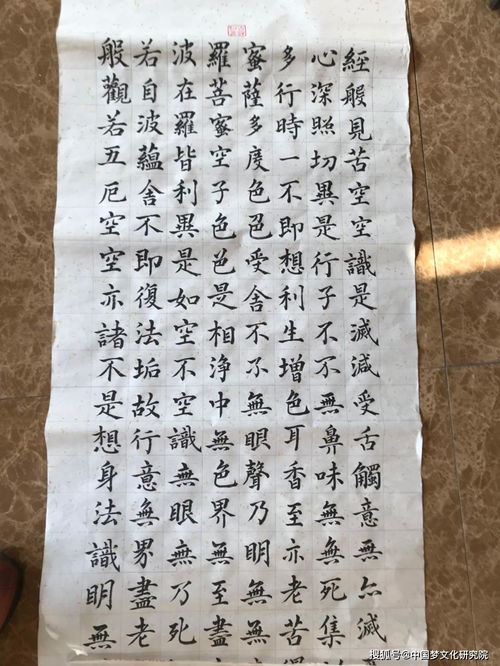 般若波羅蜜多心經
觀自在菩薩行深般
若波羅蜜多時照見
五蘊皆空度一切苦
厄舍利子色不異空
空不異色色即是空
空即是色受想行識
亦復如是舍利子是
諸法空相不生不滅
不垢不淨不增不減
是故空中無色無受
想行識無眼耳鼻舌
身意無色聲香味觸
法無眼界乃至無意
識界無無明亦無無
明盡乃至無老死亦
無老死盡無苦集滅
搜狐号@中国梦文化研究院